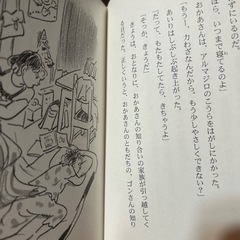 ずにいるのだ。
ほら、いつまで寝てるのよ」
おかあさんは、アルマジロのこうらをはがしにかかった。
「もうー、力わざなんだから、もう少しやさしくできない?」
あいりはしぶしぶ起き上がった。
「だって、もたもたしてたら、きちゃうよ」
「そっか、きょうだ」
きょうは、おとなりに、おかあさんの知り合いの家族が引っ越してく
る日だった。正しくいうと、おかあさんのともだちの、ゴンさんの知り